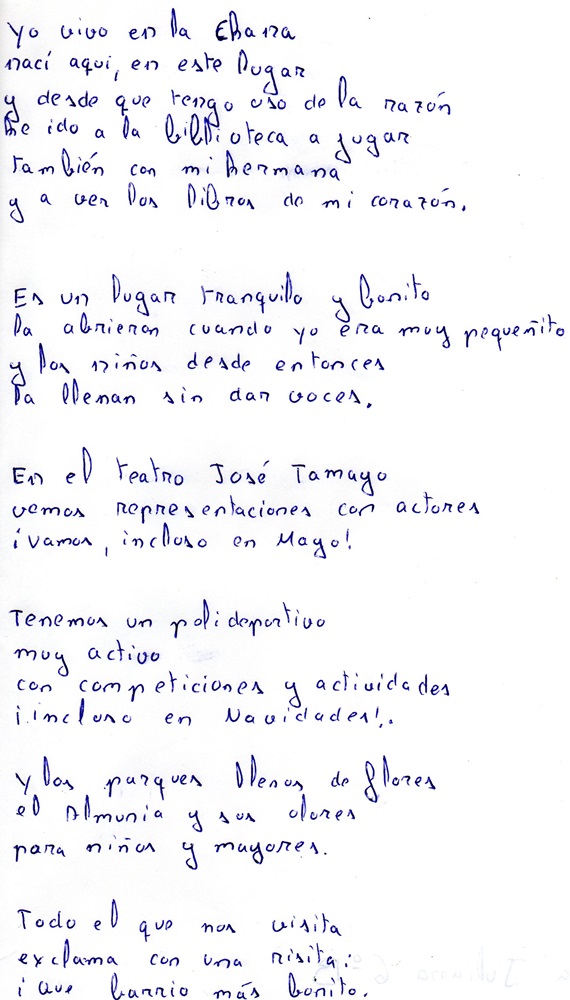 Yo vivo en la Chana
nací aqui, en este lugar
y desde que tengo uso de la razón
he ido a la biblioteca a jugar
también con mi hermana
y a ver los libros de mi corazón.
Es un lugar tranquilo y bonito
la abrieron cuando yo era muy pequeñito
y los niños desde entonces
la llenan sin dar voces.
En el teatro José Tamayo
vemos representaciones con actores
¡vamos, incluso en Mayo!
Tenemos un polideportivo
muy activo
con competiciones y actividades
¡incluso en Navidades!.
Y los parques llenos de flores
el Almunia y sus olores
para niños y mayores.
Todo el que nos visita
exclama con una risita:
¡Que barrio más bonito.